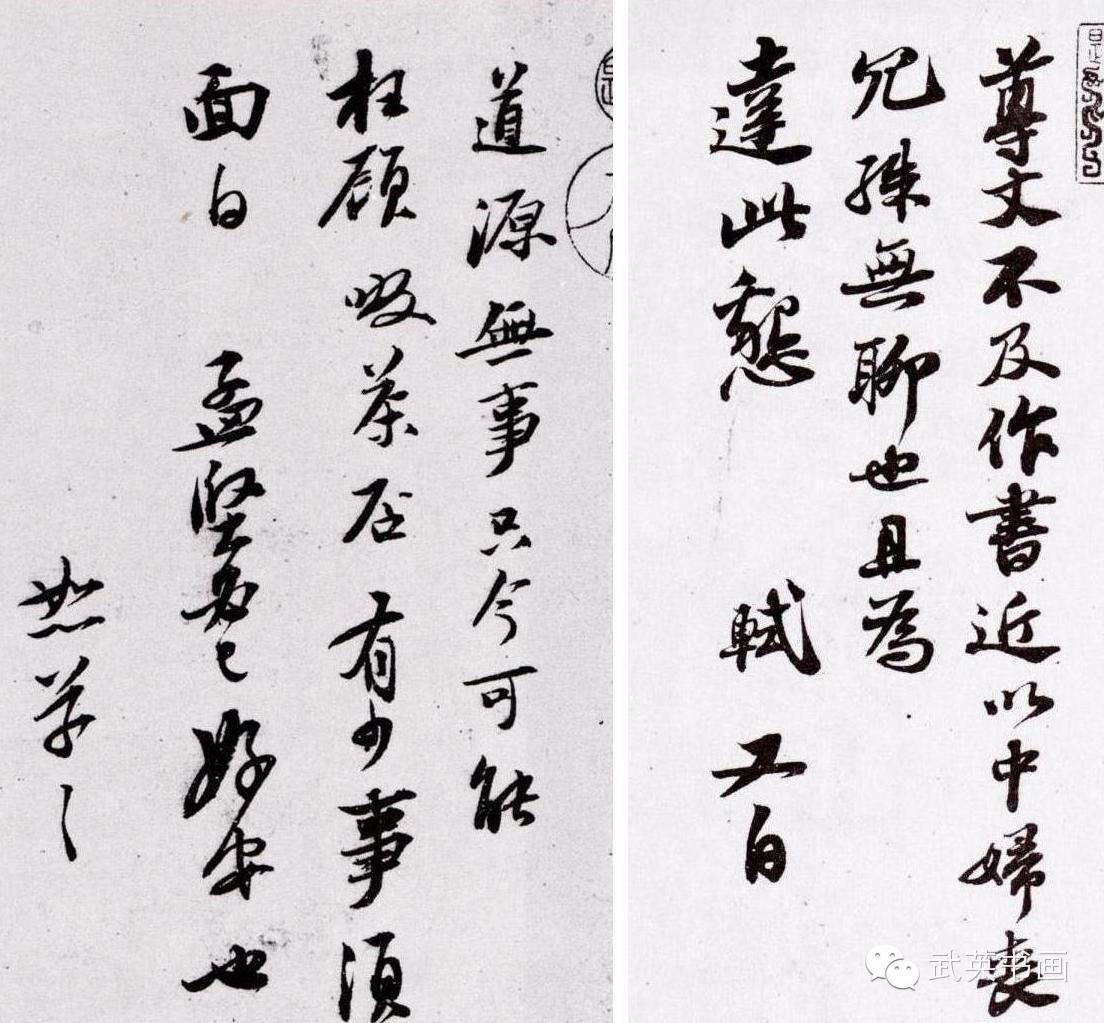 尊丈不及作書近以中婦喪
免殊無聊也且為
達此懇　軾又白
道源無事只今可能
枉顧啜茶否有少事須
面白　孟堅必已好安也
恕草々
武英书画